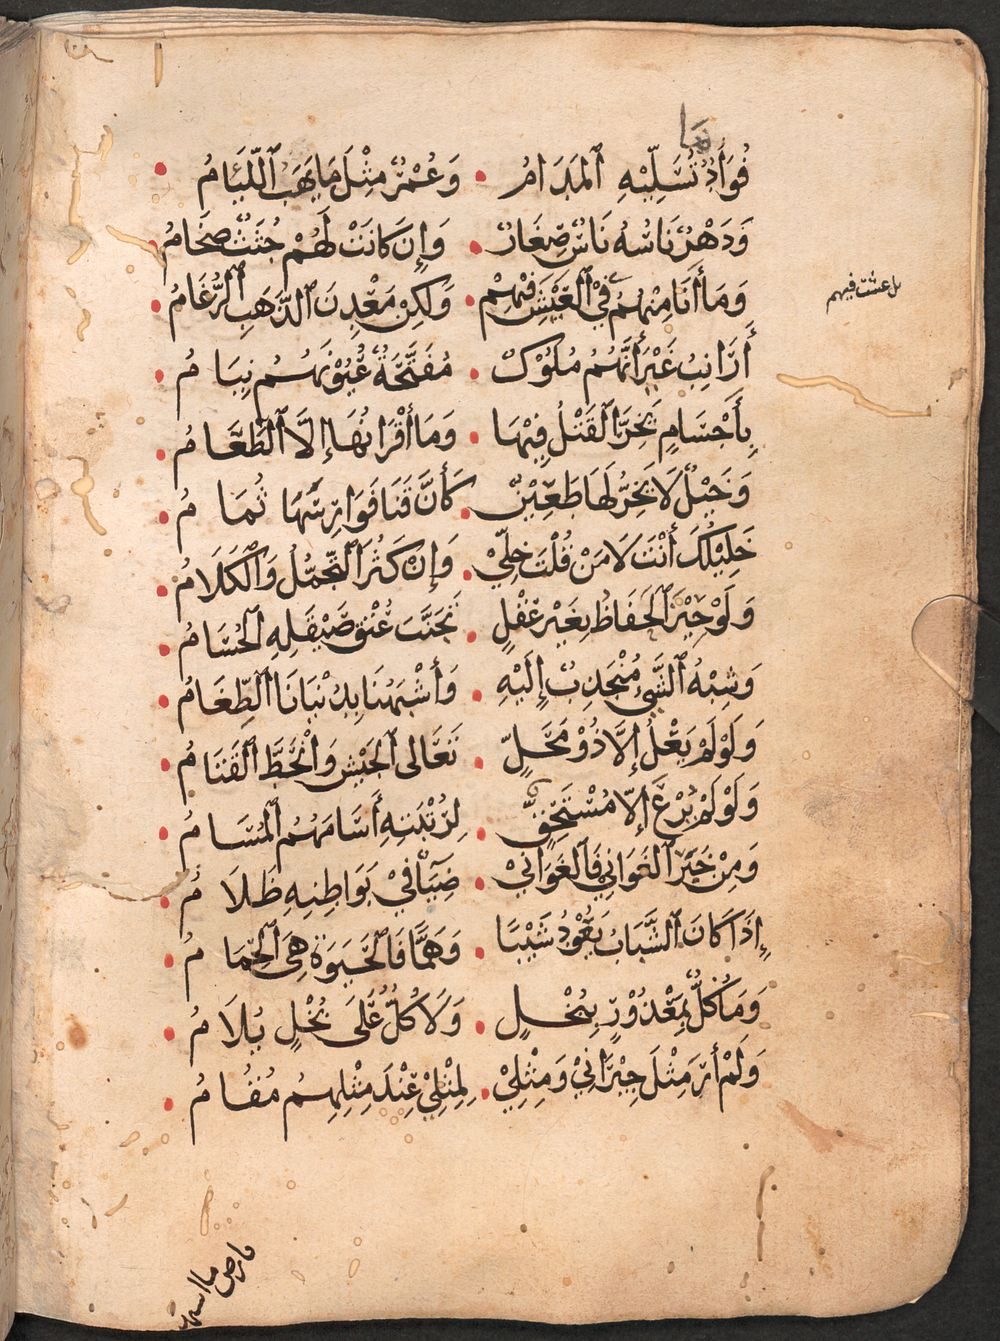 ما
فُوَادٌ تُسَلِّيْهِ ٱلْمُدَامُ • وَعُمْرٌ مِثْلُ مَا يَهَبُ ٱللِّيَامُ •
وَدَهْرٌ نَاسُهُ نَاسٌ صِغَارٌ • وَإِنْ كَانَتْ لَهُمْ جُثَثٌ ضِخَامُ •
وَمَا أَنَا مِنْهُمُ فِيْ ٱلْعَيْشِ فِيْهِمْ • وَلكِنْ مَعْدِنُ ٱلذَّهَبِ ٱلرَّغَامُ •
عشت فيهم
أَرَانِبُ غَيْرَ أَنَّهُمْ مُلُوْكٌ • مُفَتَّحَةٌ عُيُوْنُهُمُ نِيَامُ •
بِأَجْسَامٍ يَحَرُّ ٱلْقَتْلُ فِيْهَا • وَمَا أَقْرَانُهَا إِلَّا ٱلطَّعَامُ •
وَخَيْلٍ لَا يَخِرُّ لَهَا طَعِيْنٌ • كَأَنَّ قَنَا فَوَارِسِهَا ثُمَامُ •
خَلِيْلُكَ أَنْتَ لَا مَنْ قُلْتَ خِلِّيْ • وَإِنْ كَثُرَ ٱلتَّجَمُّلُ وَٱلْكَلَامُ •
وَلَوْ حِيْزَ ٱلْحِفَاظُ بِغَيْرِ عَقْلٍ • تَجَنَّبَ عُنْقَ صَيْقَلِهِ ٱلْحُسَامُ •
وَشِبْهُ ٱلشَّيْءِ مُنْجَذِبٌ إِلَيْهِ • وَأَشْبَهُنَا بِدُنْيَانَا ٱلطِّغَامُ •
وَلَوْ لَمْ يَعْلُ إِلَّا ذُوْ مَحَلٍّ • تَعَالَى ٱلْجَيْشُ وَٱنْحَطَّ ٱلْقَتَامُ •
وَلَوْ لَمْ يَرْعَ إِلَّا مُسْتَحِقٌّ • لِرُتْبَتِهِ أَسَامَهُمُ ٱلْمُسَامُ •
وَمِنْ خَبَرِ ٱلْغَوَانِيْ فَٱلْغَوَانِيْ • ضِيَآءٌ فِيْ بَوَاطِنِهِ ظَلَامُ •
إِذَا كَانَ ٱلشَّبَابُ يَعُوْدُ شَيْبًا • وَهَمًّا فَٱلْحَيَوةُ هِيَ ٱلْحِمَامُ •
وَمَا كُلٌّ بِمَعْذُوْرٍ بِبُخْلٍ • وَلَا كُلٌّ عَلَى بُخْلٍ يُلَامُ •
وَلَمْ أَرَ مِثْلَ جِيْرَانِيْ وَمِثْلِيْ • لِمِثْلِيْ عِنْدَ مِثْلِهِمُ مُقَامُ •
بارض ما